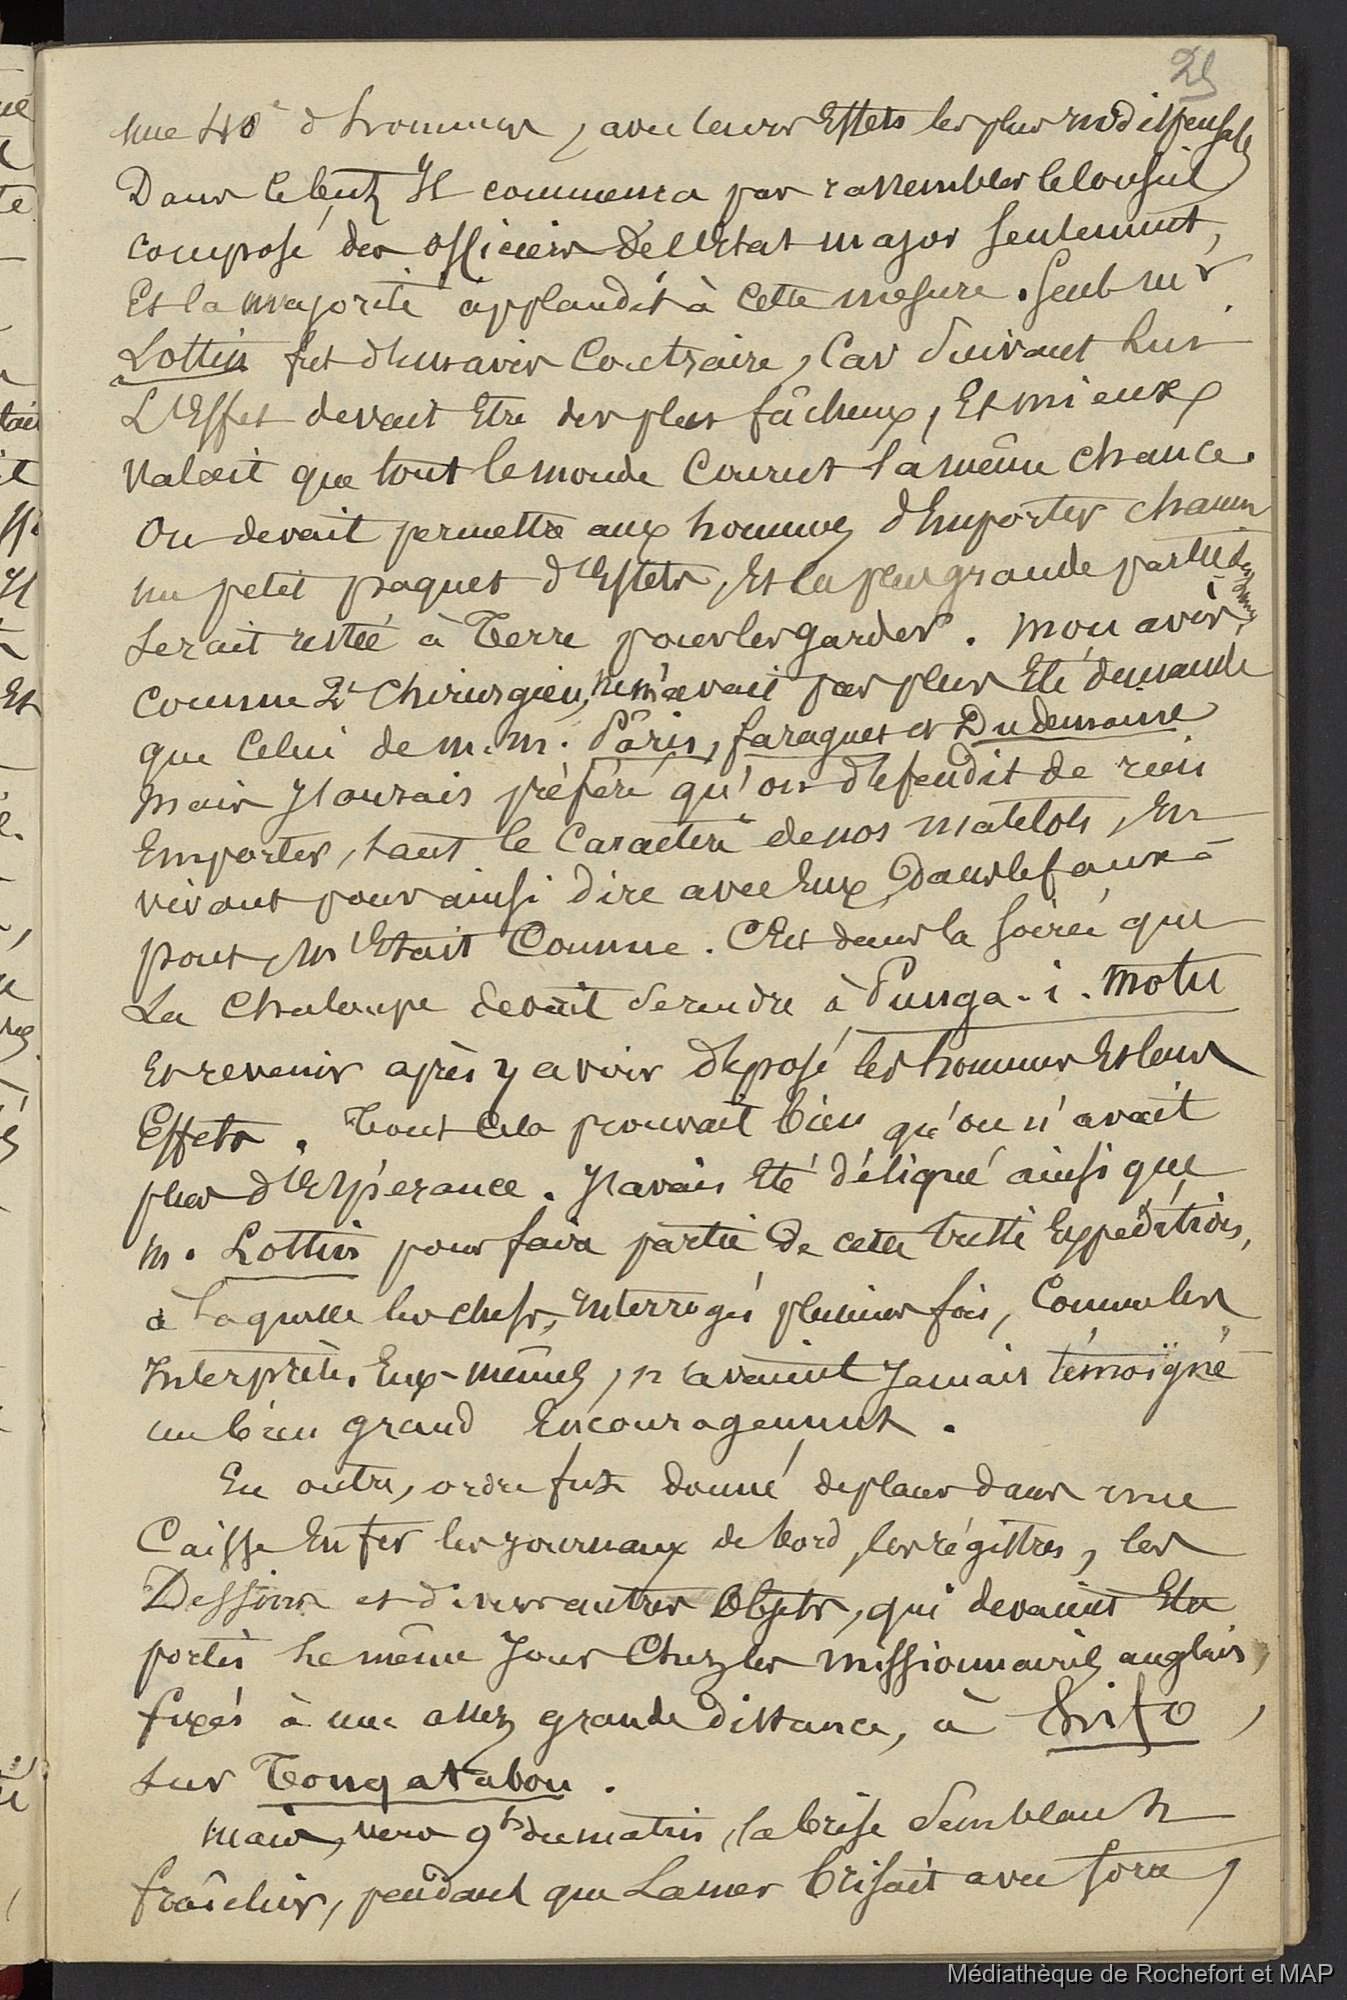 25
une 40e d'hommes, avec leurs Effets les plus indispensab
Dans ce but, Il commença par rassembler le Conseil
composé des officiers de l'Etat major seulement,
Et la majorité applaudit à cette mesure. Seul mr
Lottin fut d'un avis Contraire, Car suivant lui
L'Effet devait Etre des plus fâcheux, Et mieux
valait que tout le monde Courut la même chance.
On devait permettre aux hommes d'Emporter chacun
un petit paquet d'Effets, Et la plus grande partie des
serait restée à Terre pour les garder. Mon avis,
comme 2e Chirurgien, ne m'avait pas plus Eté demandé
que Celui de m.m. Pâris, faraguet et Dudemaine
Mais J'aurais préféré qu'on défendit de rien
Emporter, tant le Caractère de nos matelots, En
vivant pour ainsi dire avec Eux, Dans le faux-
pont, m'Etait Connu. C'Est dans la soirée que
La Chaloupe devait se rendre à Panga-i-Motu
Et revenir après y avoir déposé les hommes Et leurs
Effets. Tout cela prouvait bien qu'on n'avait
plus d'Espérance. J'avais Eté délégué ainsi que
m. Lottin pour faire partie de cette triste Expédition,
à laquelle les chefs, Interrogés plusieurs fois, Comme les
Interprètes Eux-mêmes, n'avaient Jamais témoigné
un bien grand Encouragement.
En outre, ordre fut donné de placer dans une
Caisse En fer les journaux de bord, les régistres, les
Dessins et divers autres Objets, qui devaient Etre
portés Le même Jour Chez les missionnaires anglais,
fixés à une assez grande distance, à Hifo,
sur Tongatabou.
Mais, vers 9h du matin, la brise semblant
fraîchir, pendant que La mer brisait avec force,
Médiathèque de Rochefort et MAP